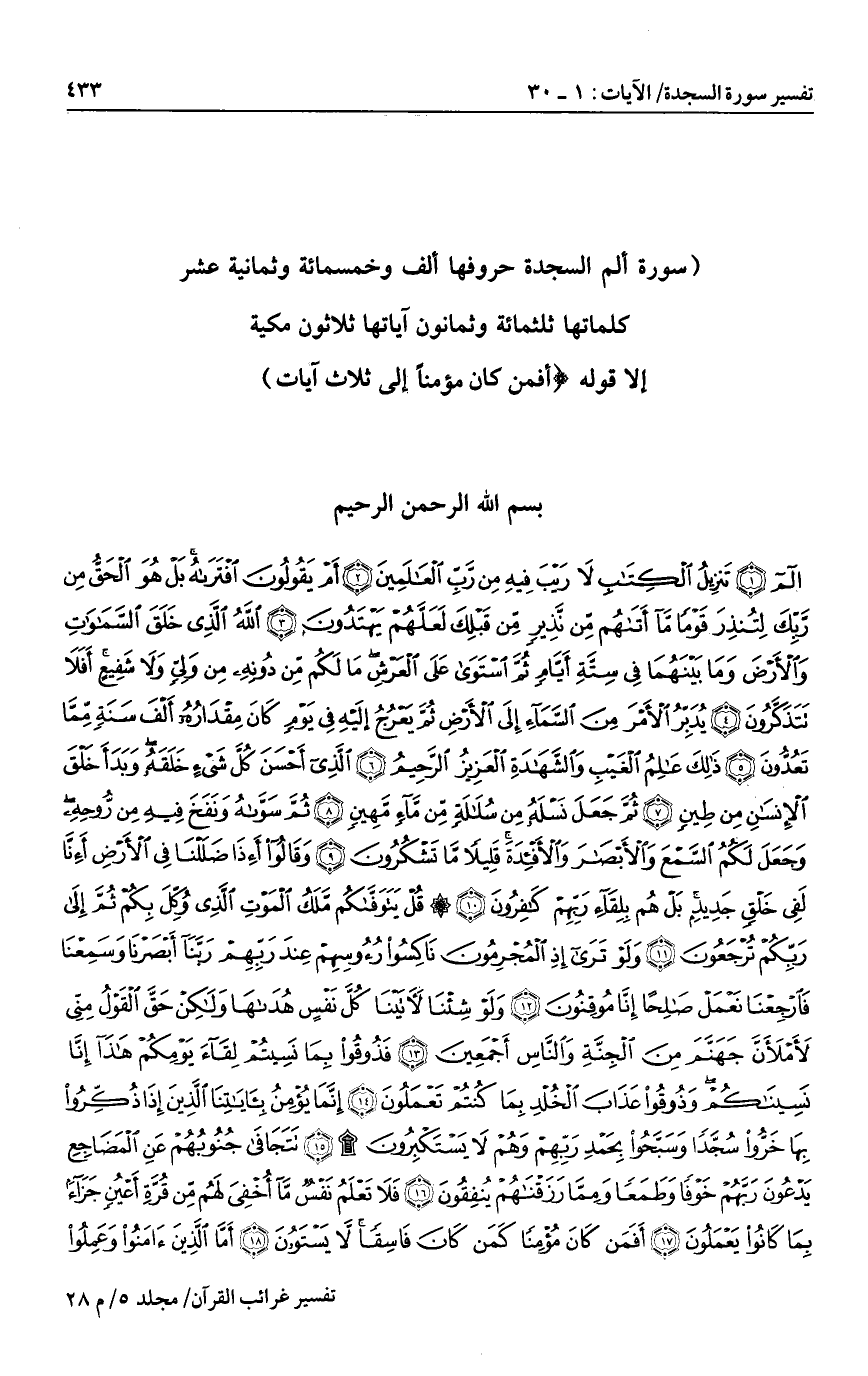 تفسير سورة السجدة/ الآيات: ١ - ٣٠ ٤٣٣
(سورة ألم السجدة حروفها ألف وخمسمائة وثمانية عشر
كلماتها ثلثمائة وثمانون آياتها ثلاثون مكية
إلا قوله ﴿أفمن كان مؤمناً إلى ثلاث آيات)
بسم الله الرحمن الرحيم
الٓمٓ ﴿١﴾ تَنزِيلُ ٱلْكِتَٰبِ لَا رَيْبَ فِيهِ مِن رَّبِّ ٱلْعَٰلَمِينَ ﴿٢﴾ أَمْ يَقُولُونَ ٱفْتَرَىٰهُ ۚ بَلْ هُوَ ٱلْحَقُّ مِن
رَّبِّكَ لِتُنذِرَ قَوْمًا مَّآ أَتَىٰهُم مِّن نَّذِيرٍ مِّن قَبْلِكَ لَعَلَّهُمْ يَهْتَدُونَ ﴿٣﴾ ٱللَّهُ ٱلَّذِى خَلَقَ ٱلسَّمَٰوَٰتِ
وَٱلْأَرْضَ وَمَا بَيْنَهُمَا فِى سِتَّةِ أَيَّامٍ ثُمَّ ٱسْتَوَىٰ عَلَى ٱلْعَرْشِ ۖ مَا لَكُم مِّن دُونِهِۦ مِن وَلِىٍّ وَلَا شَفِيعٍ ۚ أَفَلَا
تَتَذَكَّرُونَ ﴿٤﴾ يُدَبِّرُ ٱلْأَمْرَ مِنَ ٱلسَّمَآءِ إِلَى ٱلْأَرْضِ ثُمَّ يَعْرُجُ إِلَيْهِ فِى يَوْمٍ كَانَ مِقْدَارُهُۥٓ أَلْفَ سَنَةٍ مِّمَّا
تَعُدُّونَ ﴿٥﴾ ذَٰلِكَ عَٰلِمُ ٱلْغَيْبِ وَٱلشَّهَٰدَةِ ٱلْعَزِيزُ ٱلرَّحِيمُ ﴿٦﴾ ٱلَّذِىٓ أَحْسَنَ كُلَّ شَىْءٍ خَلَقَهُۥ ۖ وَبَدَأَ خَلْقَ
ٱلْإِنسَٰنِ مِن طِينٍ ﴿٧﴾ ثُمَّ جَعَلَ نَسْلَهُۥ مِن سُلَٰلَةٍ مِّن مَّآءٍ مَّهِينٍ ﴿٨﴾ ثُمَّ سَوَّىٰهُ وَنَفَخَ فِيهِ مِن رُّوحِهِۦ ۖ
وَجَعَلَ لَكُمُ ٱلسَّمْعَ وَٱلْأَبْصَٰرَ وَٱلْأَفْـِٔدَةَ ۚ قَلِيلًا مَّا تَشْكُرُونَ ﴿٩﴾ وَقَالُوٓا۟ أَءِذَا ضَلَلْنَا فِى ٱلْأَرْضِ أَءِنَّا
لَفِى خَلْقٍ جَدِيدٍۭ ۚ بَلْ هُم بِلِقَآءِ رَبِّهِمْ كَٰفِرُونَ ﴿١٠﴾ ۞ قُلْ يَتَوَفَّىٰكُم مَّلَكُ ٱلْمَوْتِ ٱلَّذِى وُكِّلَ بِكُمْ ثُمَّ إِلَىٰ
رَبِّكُمْ تُرْجَعُونَ ﴿١١﴾ وَلَوْ تَرَىٰٓ إِذِ ٱلْمُجْرِمُونَ نَاكِسُوا۟ رُءُوسِهِمْ عِندَ رَبِّهِمْ رَبَّنَآ أَبْصَرْنَا وَسَمِعْنَا
فَٱرْجِعْنَا نَعْمَلْ صَٰلِحًا إِنَّا مُوقِنُونَ ﴿١٢﴾ وَلَوْ شِئْنَا لَءَاتَيْنَا كُلَّ نَفْسٍ هُدَىٰهَا وَلَٰكِنْ حَقَّ ٱلْقَوْلُ مِنِّى
لَأَمْلَأَنَّ جَهَنَّمَ مِنَ ٱلْجِنَّةِ وَٱلنَّاسِ أَجْمَعِينَ ﴿١٣﴾ فَذُوقُوا۟ بِمَا نَسِيتُمْ لِقَآءَ يَوْمِكُمْ هَٰذَآ إِنَّا
نَسِينَٰكُمْ ۖ وَذُوقُوا۟ عَذَابَ ٱلْخُلْدِ بِمَا كُنتُمْ تَعْمَلُونَ ﴿١٤﴾ إِنَّمَا يُؤْمِنُ بِـَٔايَٰتِنَا ٱلَّذِينَ إِذَا ذُكِّرُوا۟
بِهَا خَرُّوا۟ سُجَّدًا وَسَبَّحُوا۟ بِحَمْدِ رَبِّهِمْ وَهُمْ لَا يَسْتَكْبِرُونَ ۩ ﴿١٥﴾ تَتَجَافَىٰ جُنُوبُهُمْ عَنِ ٱلْمَضَاجِعِ
يَدْعُونَ رَبَّهُمْ خَوْفًا وَطَمَعًا وَمِمَّا رَزَقْنَٰهُمْ يُنفِقُونَ ﴿١٦﴾ فَلَا تَعْلَمُ نَفْسٌ مَّآ أُخْفِىَ لَهُم مِّن قُرَّةِ أَعْيُنٍ جَزَآءًۢ
بِمَا كَانُوا۟ يَعْمَلُونَ ﴿١٧﴾ أَفَمَن كَانَ مُؤْمِنًا كَمَن كَانَ فَاسِقًا ۚ لَّا يَسْتَوُۥنَ ﴿١٨﴾ أَمَّا ٱلَّذِينَ ءَامَنُوا۟ وَعَمِلُوا۟
تفسير غرائب القرآن/ مجلد ٥/ م ٢٨